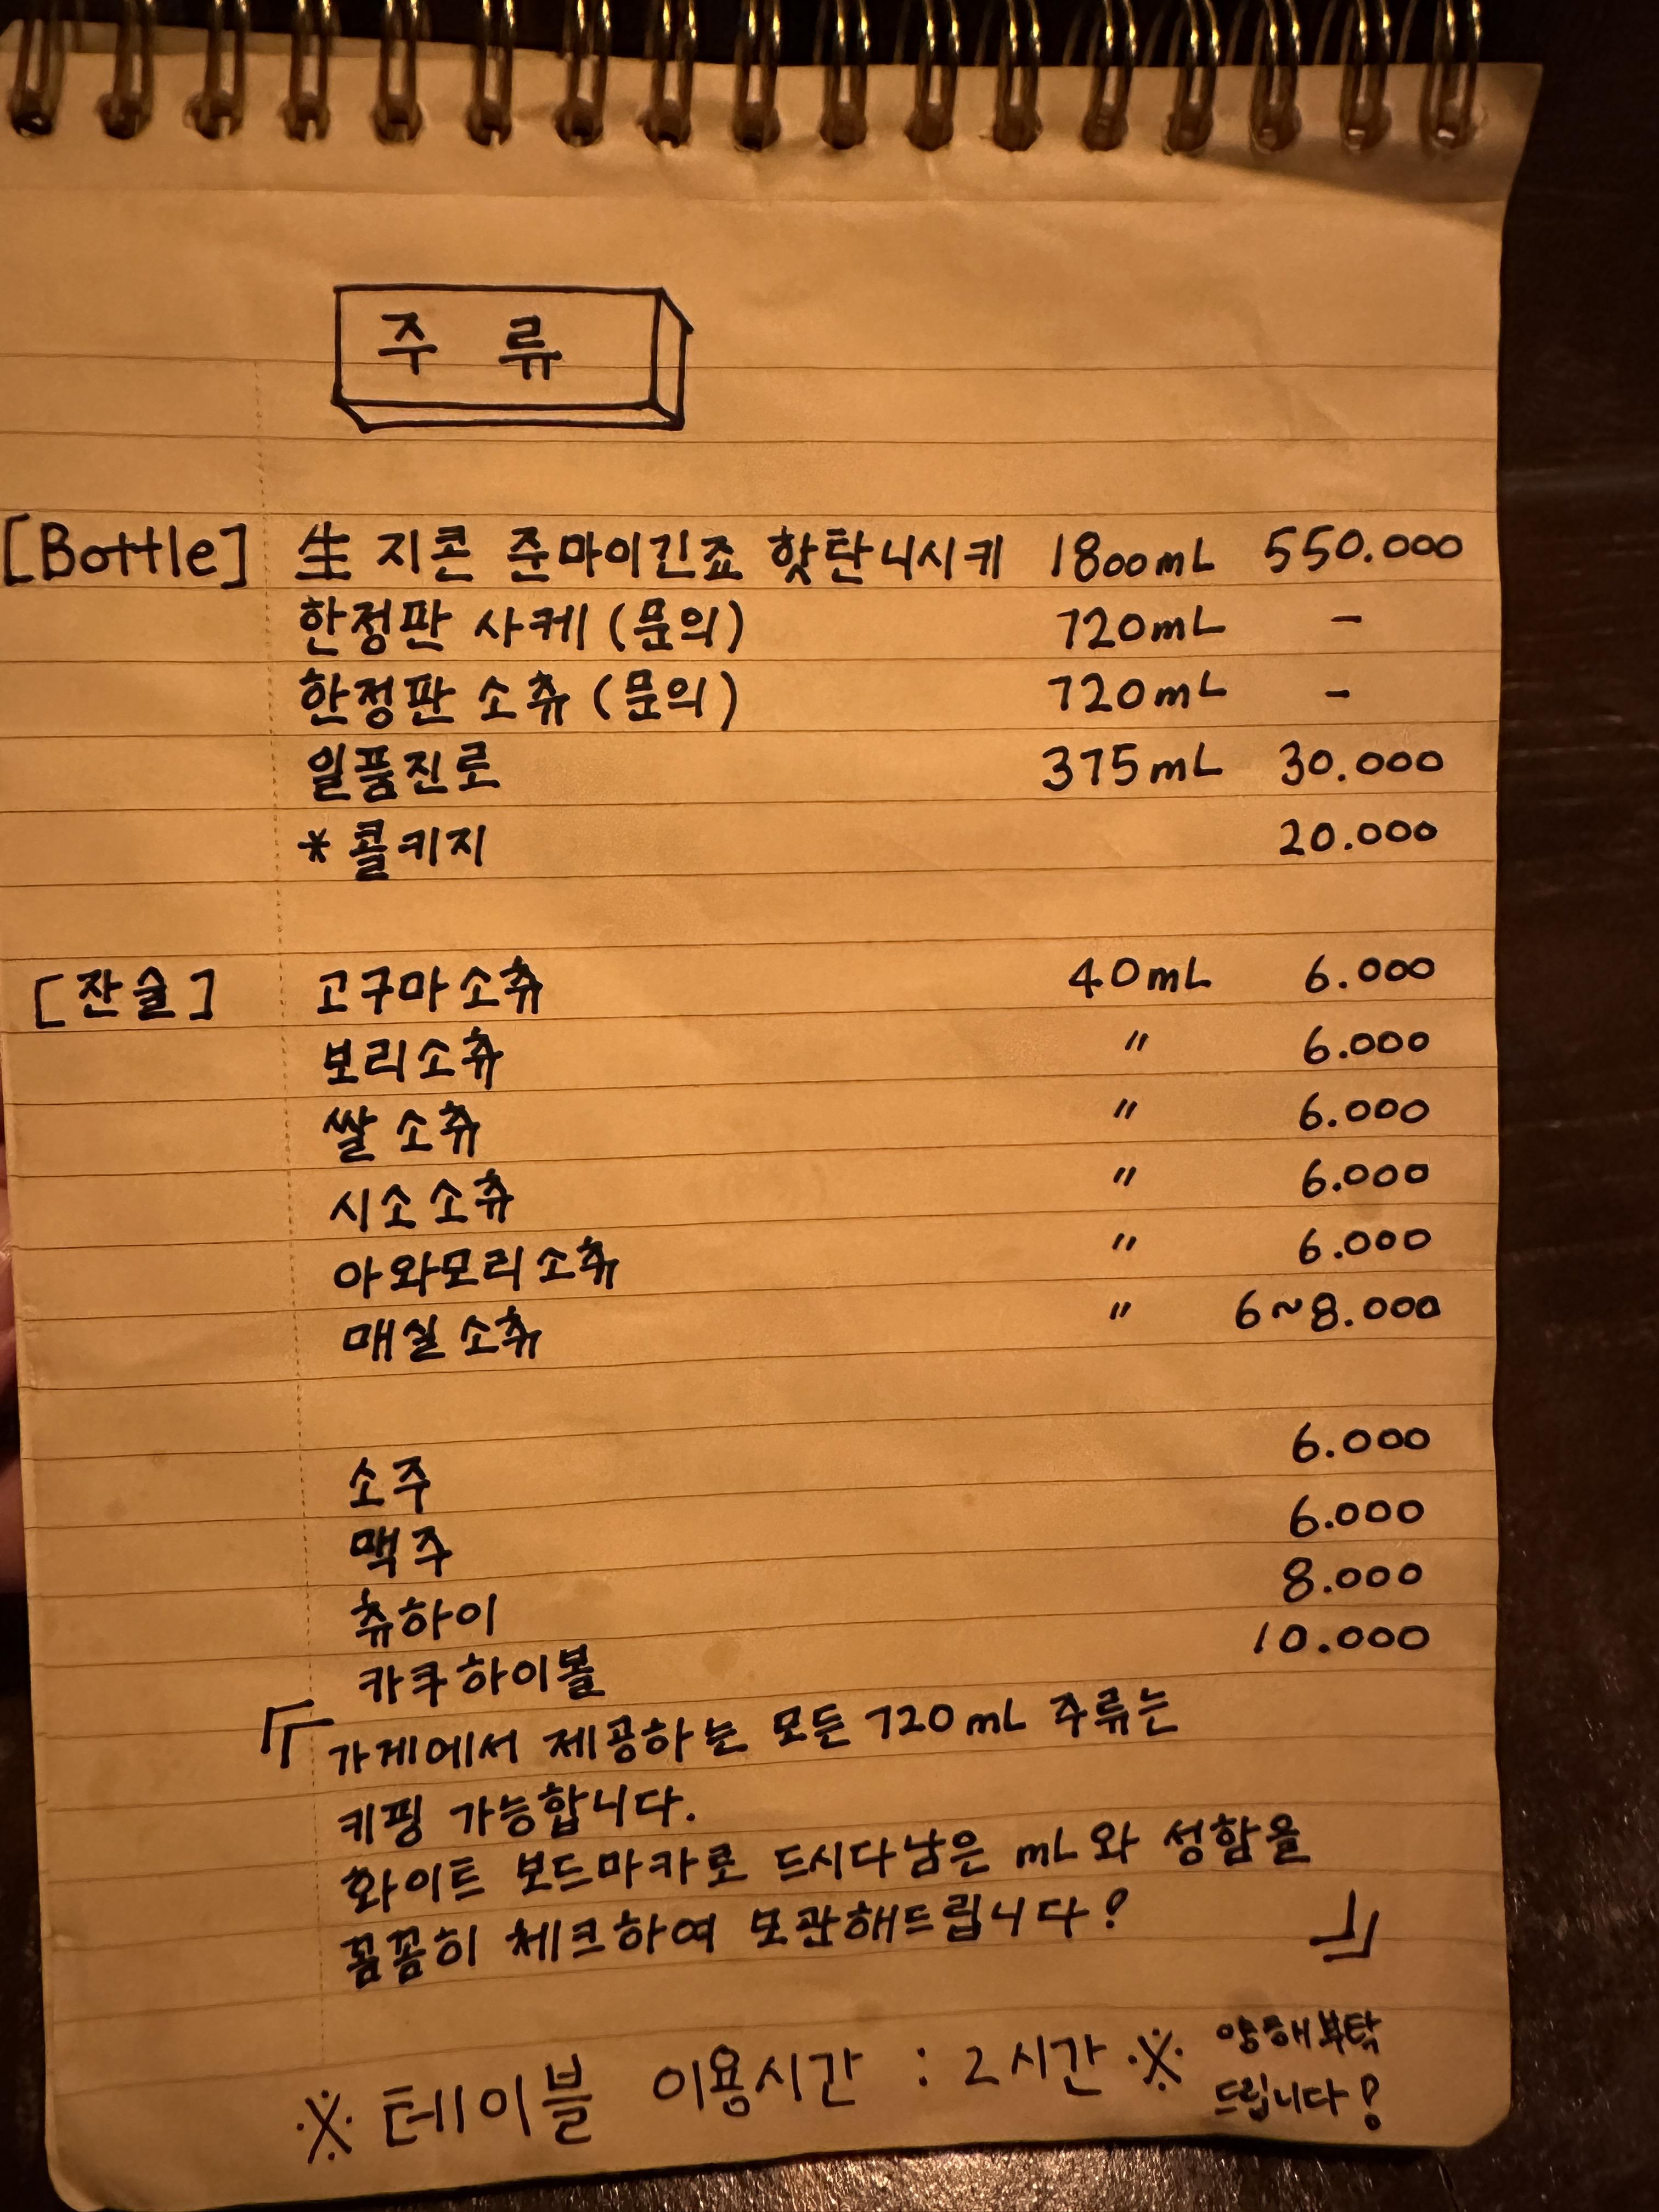 주 류
[Bottle] 生 지콘 준마이긴죠 핫탄니시키 1800mL 550.000
한정판 사케 (문의) 720mL -
한정판 소츄 (문의) 720mL -
일품진로 375mL 30.000
* 콜키지 20.000
[잔술] 고구마소츄 40mL 6.000
보리소츄 〃 6.000
쌀 소츄 〃 6.000
시소소츄 〃 6.000
아와모리소츄 〃 6.000
매실소츄 〃 6~8.000
소주 6.000
맥주 6.000
츄하이 8.000
카쿠하이볼 10.000
『가게에서 제공하는 모든 720mL 주류는
키핑 가능합니다.
화이트 보드마카로 드시다남은 mL와 성함을
꼼꼼히 체크하여 보관해드립니다!』
※ 테이블 이용시간 : 2시간 ※ 양해부탁
드립니다!